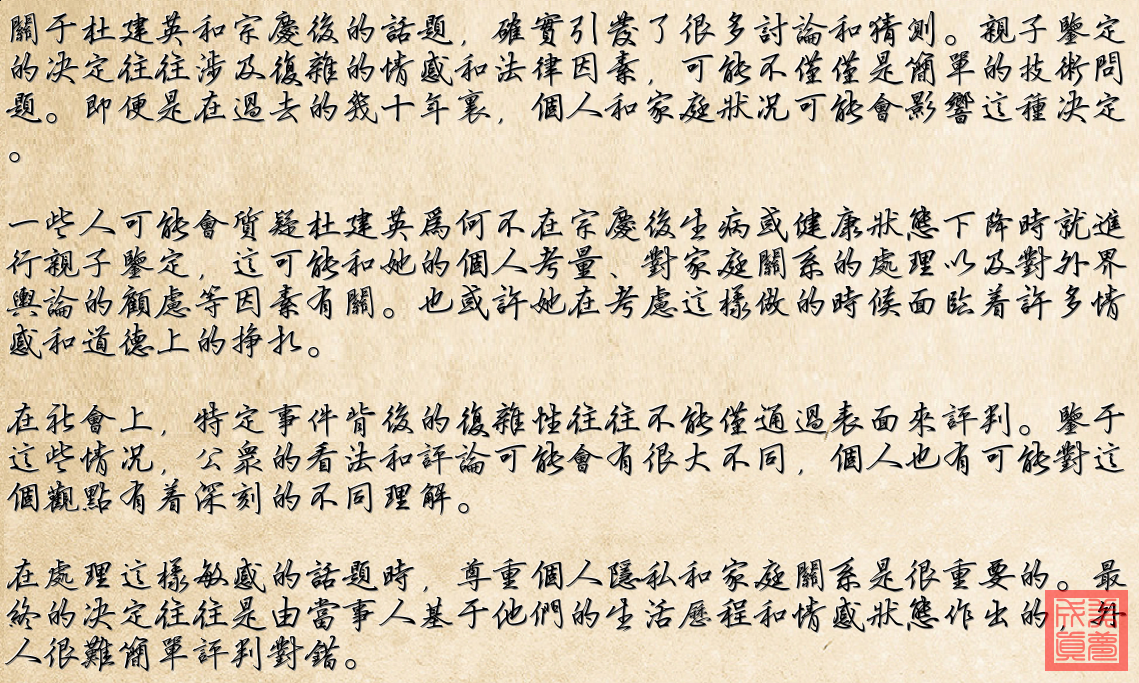 關于杜建英和宗慶後的話題，確實引發了很多討論和猜測。親子鑒定
的决定往往涉及復雜的情感和法律因素，可能不僅僅是簡單的技術問
題。即便是在過去的幾十年裏，個人和家庭狀况可能會影響這種决定
。
一些人可能會質疑杜建英爲何不在宗慶後生病或健康狀態下降時就進
行親子鑒定，這可能和她的個人考量、對家庭關系的處理以及對外界
輿論的顧慮等因素有關。也或許她在考慮這樣做的時候面臨着許多情
感和道德上的挣扎。
在社會上，特定事件背後的復雜性往往不能僅通過表面來評判。鑒于
這些情况，公衆的看法和評論可能會有很大不同，個人也有可能對這
個觀點有着深刻的不同理解。
在處理這樣敏感的話題時，尊重個人隱私和家庭關系是很重要的。最
終的决定往往是由當事人基于他們的生活歷程和情感狀態作出的，外
人很難簡單評判對錯。